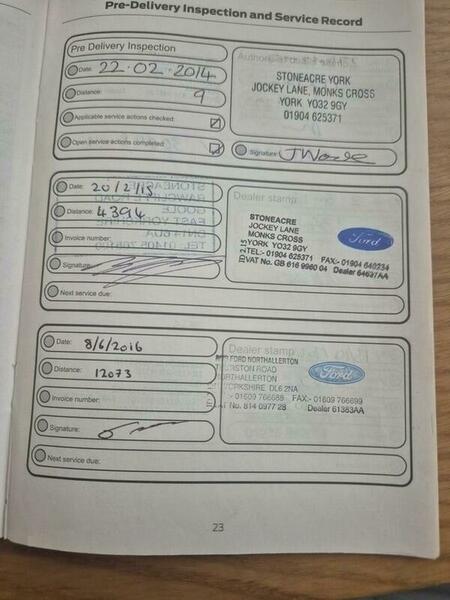 Pre-Delivery Inspection and Service Record
Pre Delivery Inspection
Date: 22-02-2014
Distance: 9
Applicable service actions checked:
Open service actions completed:
STONEACRE YORK
JOCKEY LANE, MONKS CROSS
YORK YO32 9GY
01904 625371
Signature:
Date: 20/2/15
Distance: 4394
Invoice number:
Signature:
Next service due:
Dealer stamp
STONEACRE
JOCKEY LANE
MONKS CROSS
YORK YO32 9GY
TEL:- 01904 625371 FAX:- 01904 640234
VAT No. GB 616 9960 04 Dealer 64697AA
Ford
Date: 8/6/2016
Distance: 12073
Invoice number:
Signature:
Next service due:
Dealer stamp
FORD NORTHALLERTON
ROAD
NORTHALLERTON
YORKSHIRE DL6 2NA
:- 01609 766688 FAX:- 01609 766699
VAT No. 814 0977 28 Dealer 61383AA
Ford
23